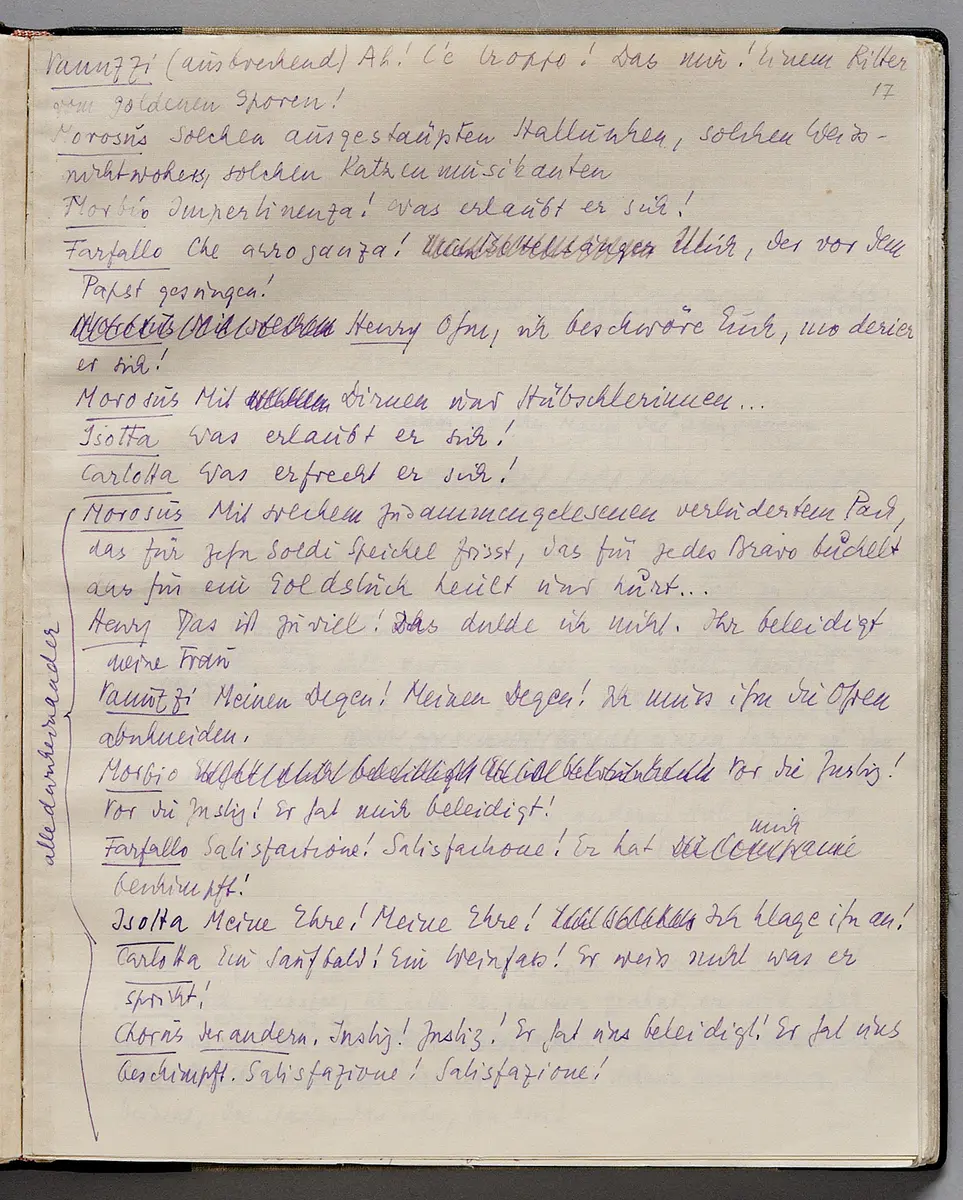 Vanuzzi (ausbrechend) Ah! C'e troppo! Das mir! Einem Ritter
17
vom goldenen Sporen!
Morosus Solchen ausgestäupten Hallunken, solchen Weis-
nichtwohers, solchen Katzenmusikanten
Morbio Impertinenza! Was erlaubt er sich!
Farfallo Che arroganza! Mich, der vor dem
Papst gesungen!
Henry Ohm, ich beschwöre Euch, moderier
er sich!
Morosus Mit Dirnen und Hübschlerinnen...
Isotta Was erlaubt er sich!
Carlotta Was erfrecht er sich!
Morosus Mit solchem zusammengelesenen verludertem Pack,
das für zehn Soldi Speichel frisst, das für jedes Bravo buckelt
das für ein Goldstück heult und hurt...
Henry Das ist zuviel! Das dulde ich nicht. Ihr beleidigt
meine Frau
Vanuzzi Meinen Degen! Meinen Degen! Ich muss ihm die Ohren
abschneiden.
Morbio Vor die Justiz!
Vor die Justiz! Er hat mich beleidigt!
Farfallo Satisfactione! Satisfactione! Er hat mich
beschimpft!
Isotta Meine Ehre! Meine Ehre! Ich klage ihn an!
Carlotta Ein Saufbold! Ein Weinfass! Er weis nicht was er
spricht!
Chorus der andern. Justiz! Justiz! Er hat uns beleidigt! Er hat uns
beschimpft. Satisfazione! Satisfazione!
alle durcheinander